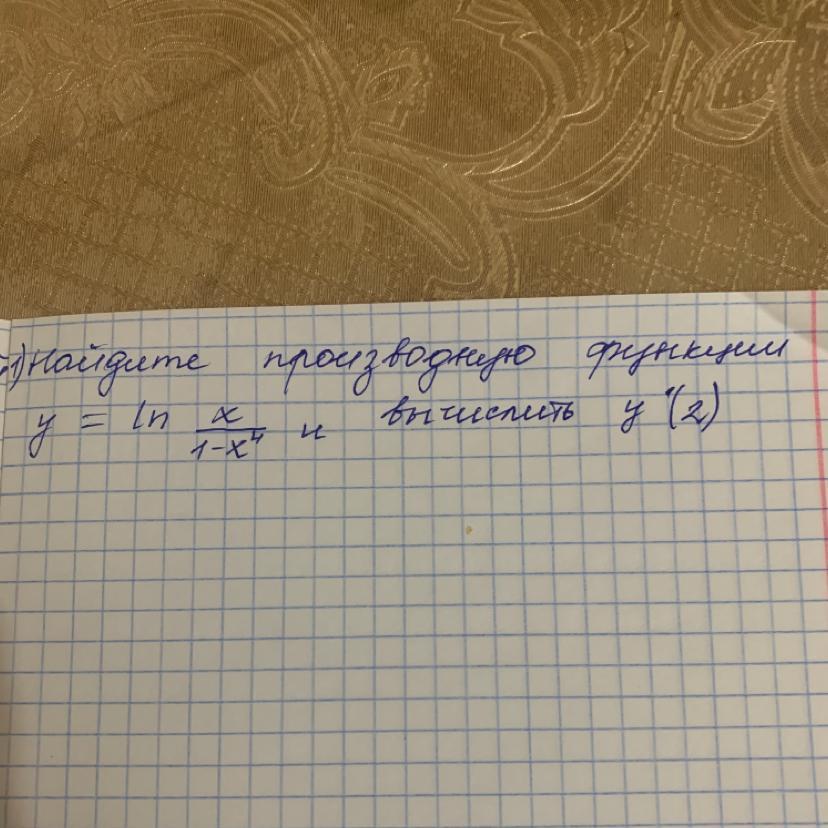 1) Найдите производную функции
y = ln x/(1-x⁴) и вычислить y'(2)